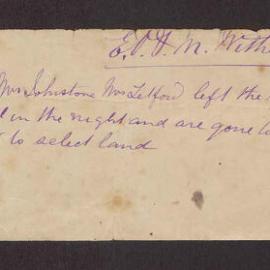 E. P. F. M. With
Mrs Johnstone Mrs Telford left the
in the night and are gone
to select land